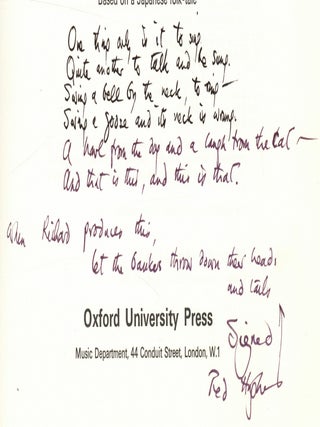 Based on a Japanese folk-tale
One thing only is it to sing
Quite another to talk and be sung.
Swing a bell by the neck, to ring —
Swing a goose and its neck is wrung.
A howl from the dog and a laugh from the cat —
And that is this, and this is that.
When Richard produces this,
let the bankers throw down their heads
and tails
Oxford University Press
Music Department, 44 Conduit Street, London, W.1
Signed
Ted Hughes